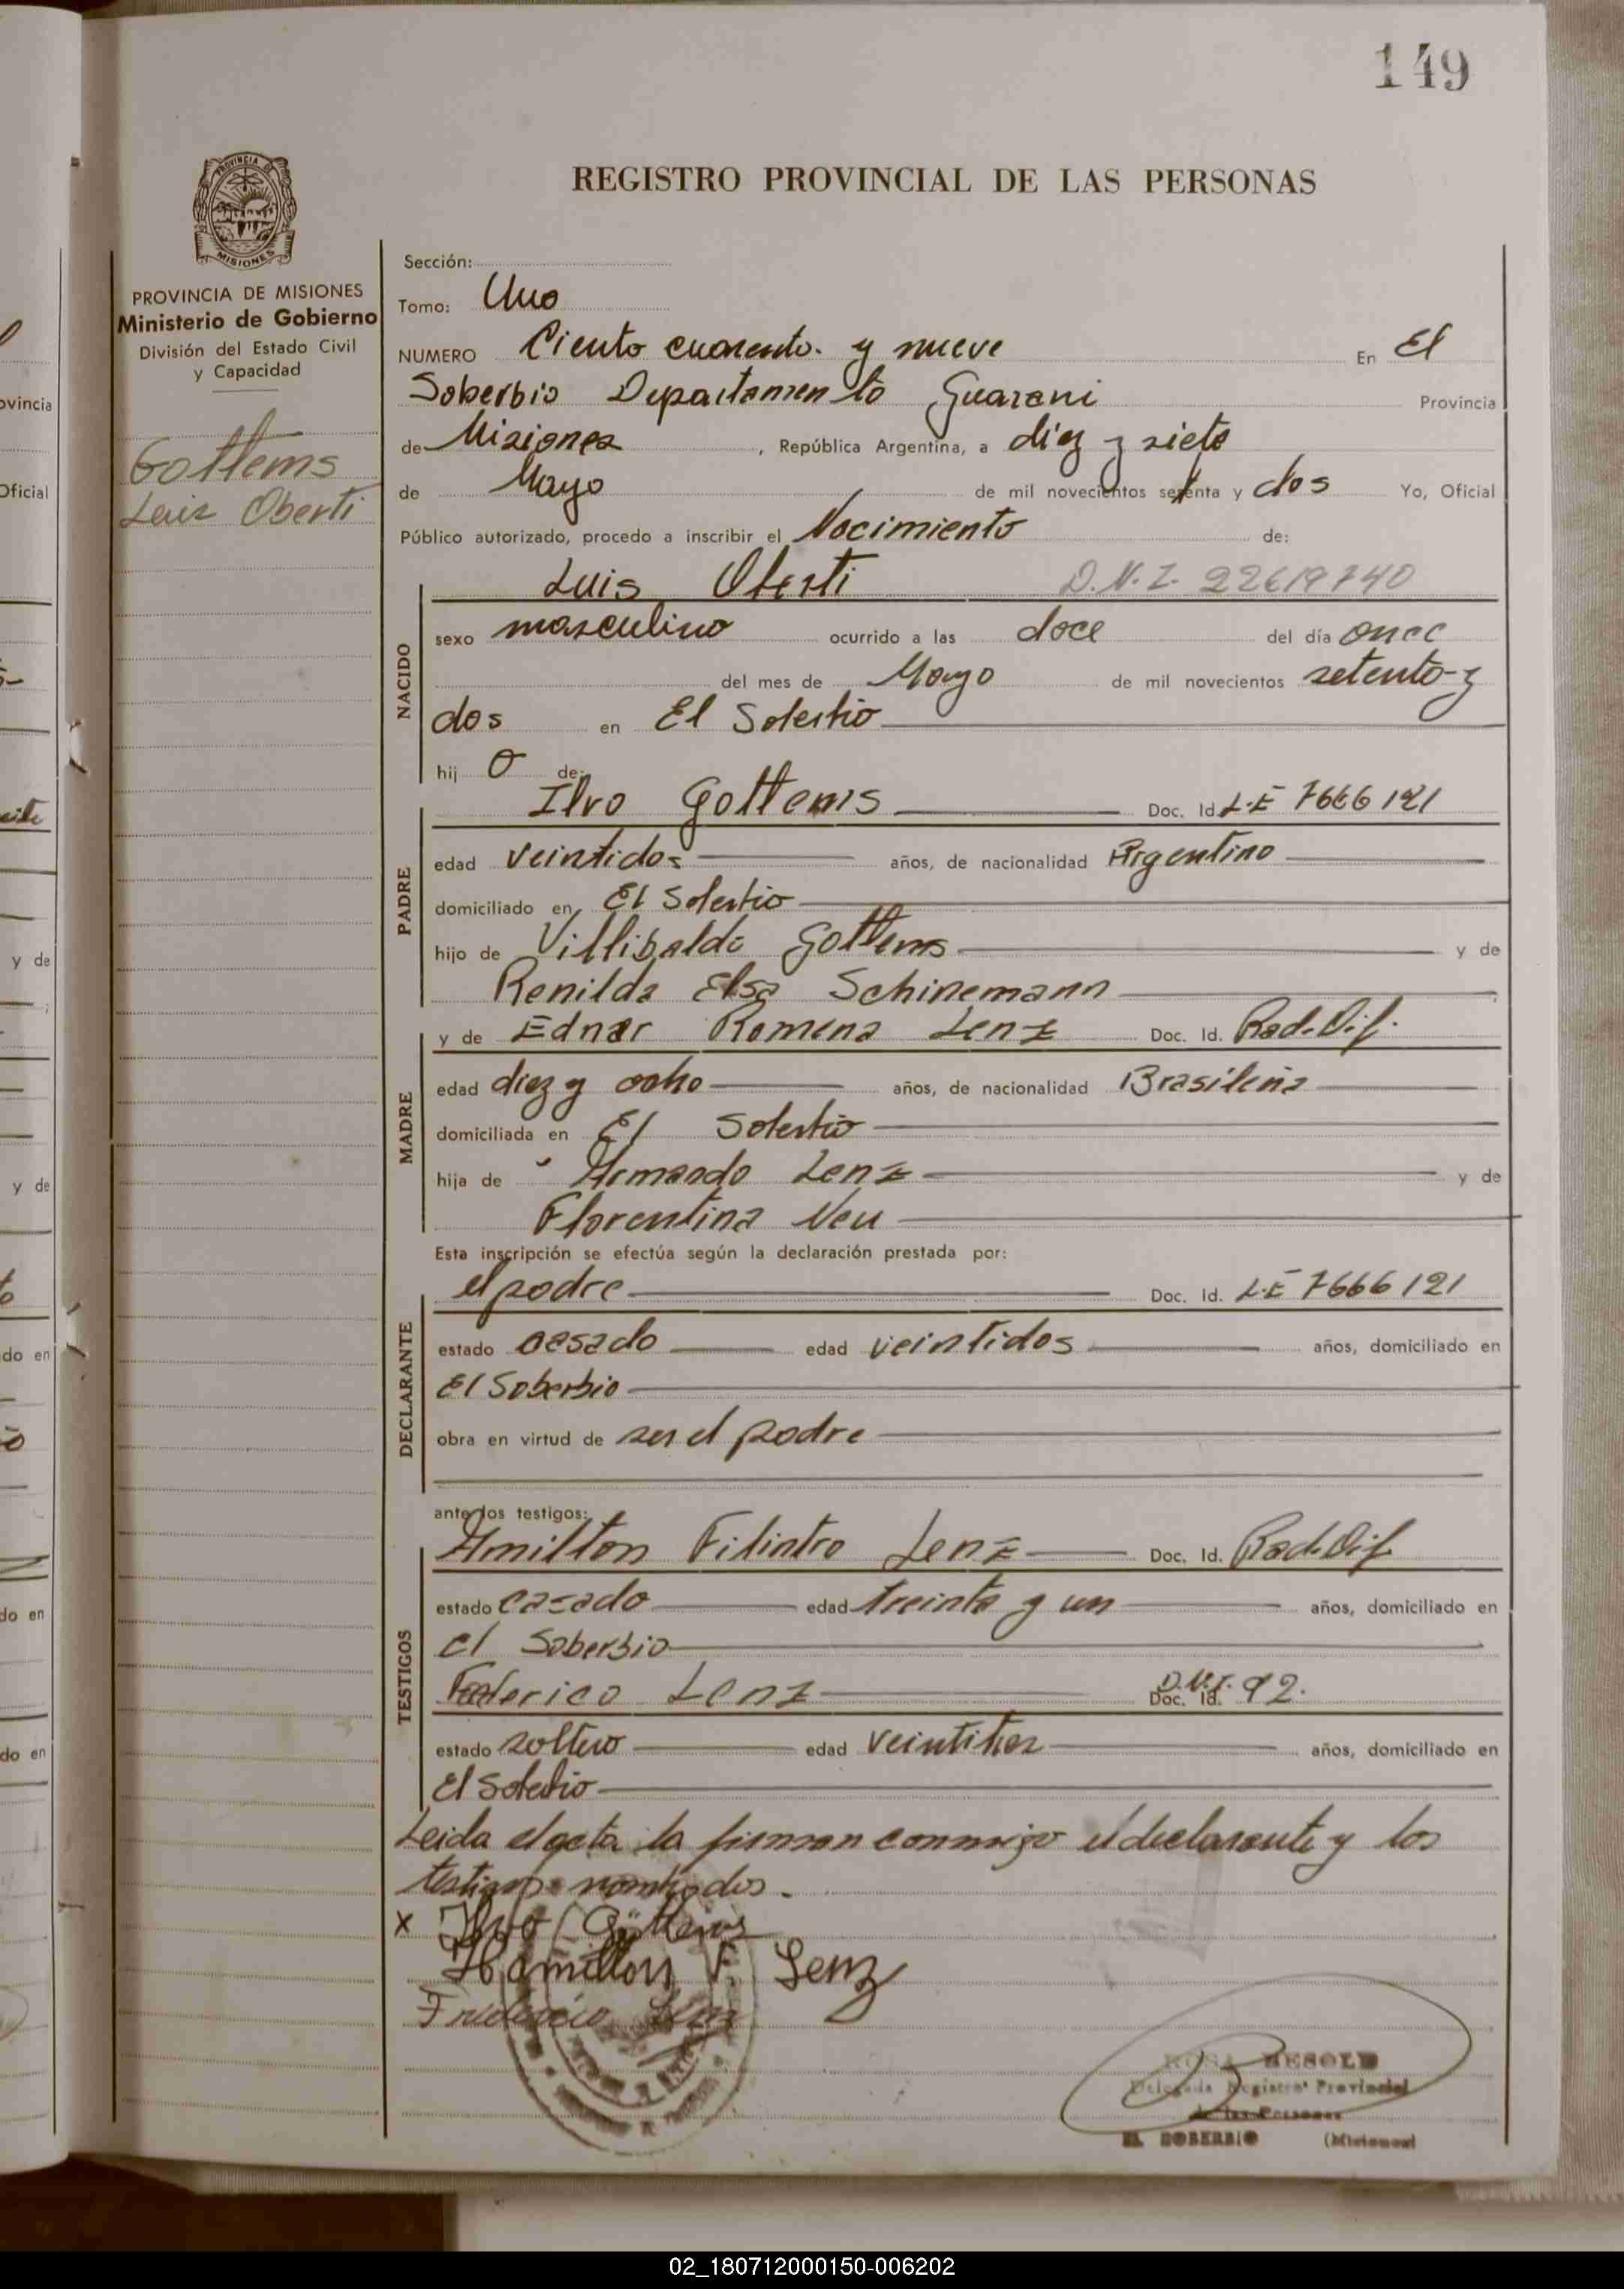 149
REGISTRO PROVINCIAL DE LAS PERSONAS
PROVINCIA DE MISIONES
PROVINCIA DE MISIONES
Ministerio de Gobierno
División del Estado Civil
y Capacidad
Gottems
Luis Oberti
Sección:
Tomo: Uno
NUMERO Ciento cuarenta y nueve En El
Soberbio Departamento Guarani Provincia
de Misiones, República Argentina, a diez y siete
de Mayo de mil novecientos setenta y dos Yo, Oficial
Público autorizado, procedo a inscribir el Nacimiento de:
Luis Oberti D.N.I. 22619740
NACIDO
sexo masculino ocurrido a las doce del día once
del mes de Mayo de mil novecientos setenta y
dos en El Soberbio
hij o de:
PADRE
Ilvo Gottems Doc. Id. L.E 7666121
edad veintidos años, de nacionalidad Argentino
domiciliado en El Soberbio
hijo de Villibaldo Gottems y de
Renilda Elsa Schinemann
MADRE
y de Ednar Romena Lenz Doc. Id. Rad. Dif.
edad diez y ocho años, de nacionalidad Brasileña
domiciliada en El Soberbio
hija de Armando Lenz y de
Florentina Neu
Esta inscripción se efectúa según la declaración prestada por:
DECLARANTE
el padre Doc. Id. L.E 7666121
estado casado edad veintidos años, domiciliado en
El Soberbio
obra en virtud de ser el padre
ante los testigos:
TESTIGOS
Amilton Filintro Lenz Doc. Id. Rad. Dif
estado casado edad treinta y un años, domiciliado en
El Soberbio
Federico Lenz D.N.I. Doc. Id. 92.
estado soltero edad veintitres años, domiciliado en
El Soberbio
Leida el acta la firman conmigo el declarante y los
testigos nombrados.
x Ilvo Gottems
Hamilton F. Lenz
Frederico Lenz
ROSA BESOLD
Delegada Registro Provincial
de las Personas
EL SOBERBIO (Misiones)
ovincia
Oficial
y de
y de
do en
do en
do en
02_180712000150-006202